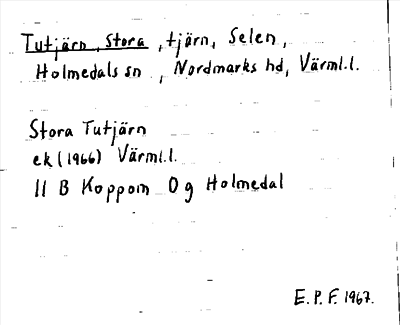 Tutjärn, Stora, tjärn, Selen,
Holmedals sn, Nordmarks hd, Värml.l.
Stora Tutjärn
ek (1966) Värml.l.
11 B Koppom 0 g Holmedal
E. P. F. 1967.